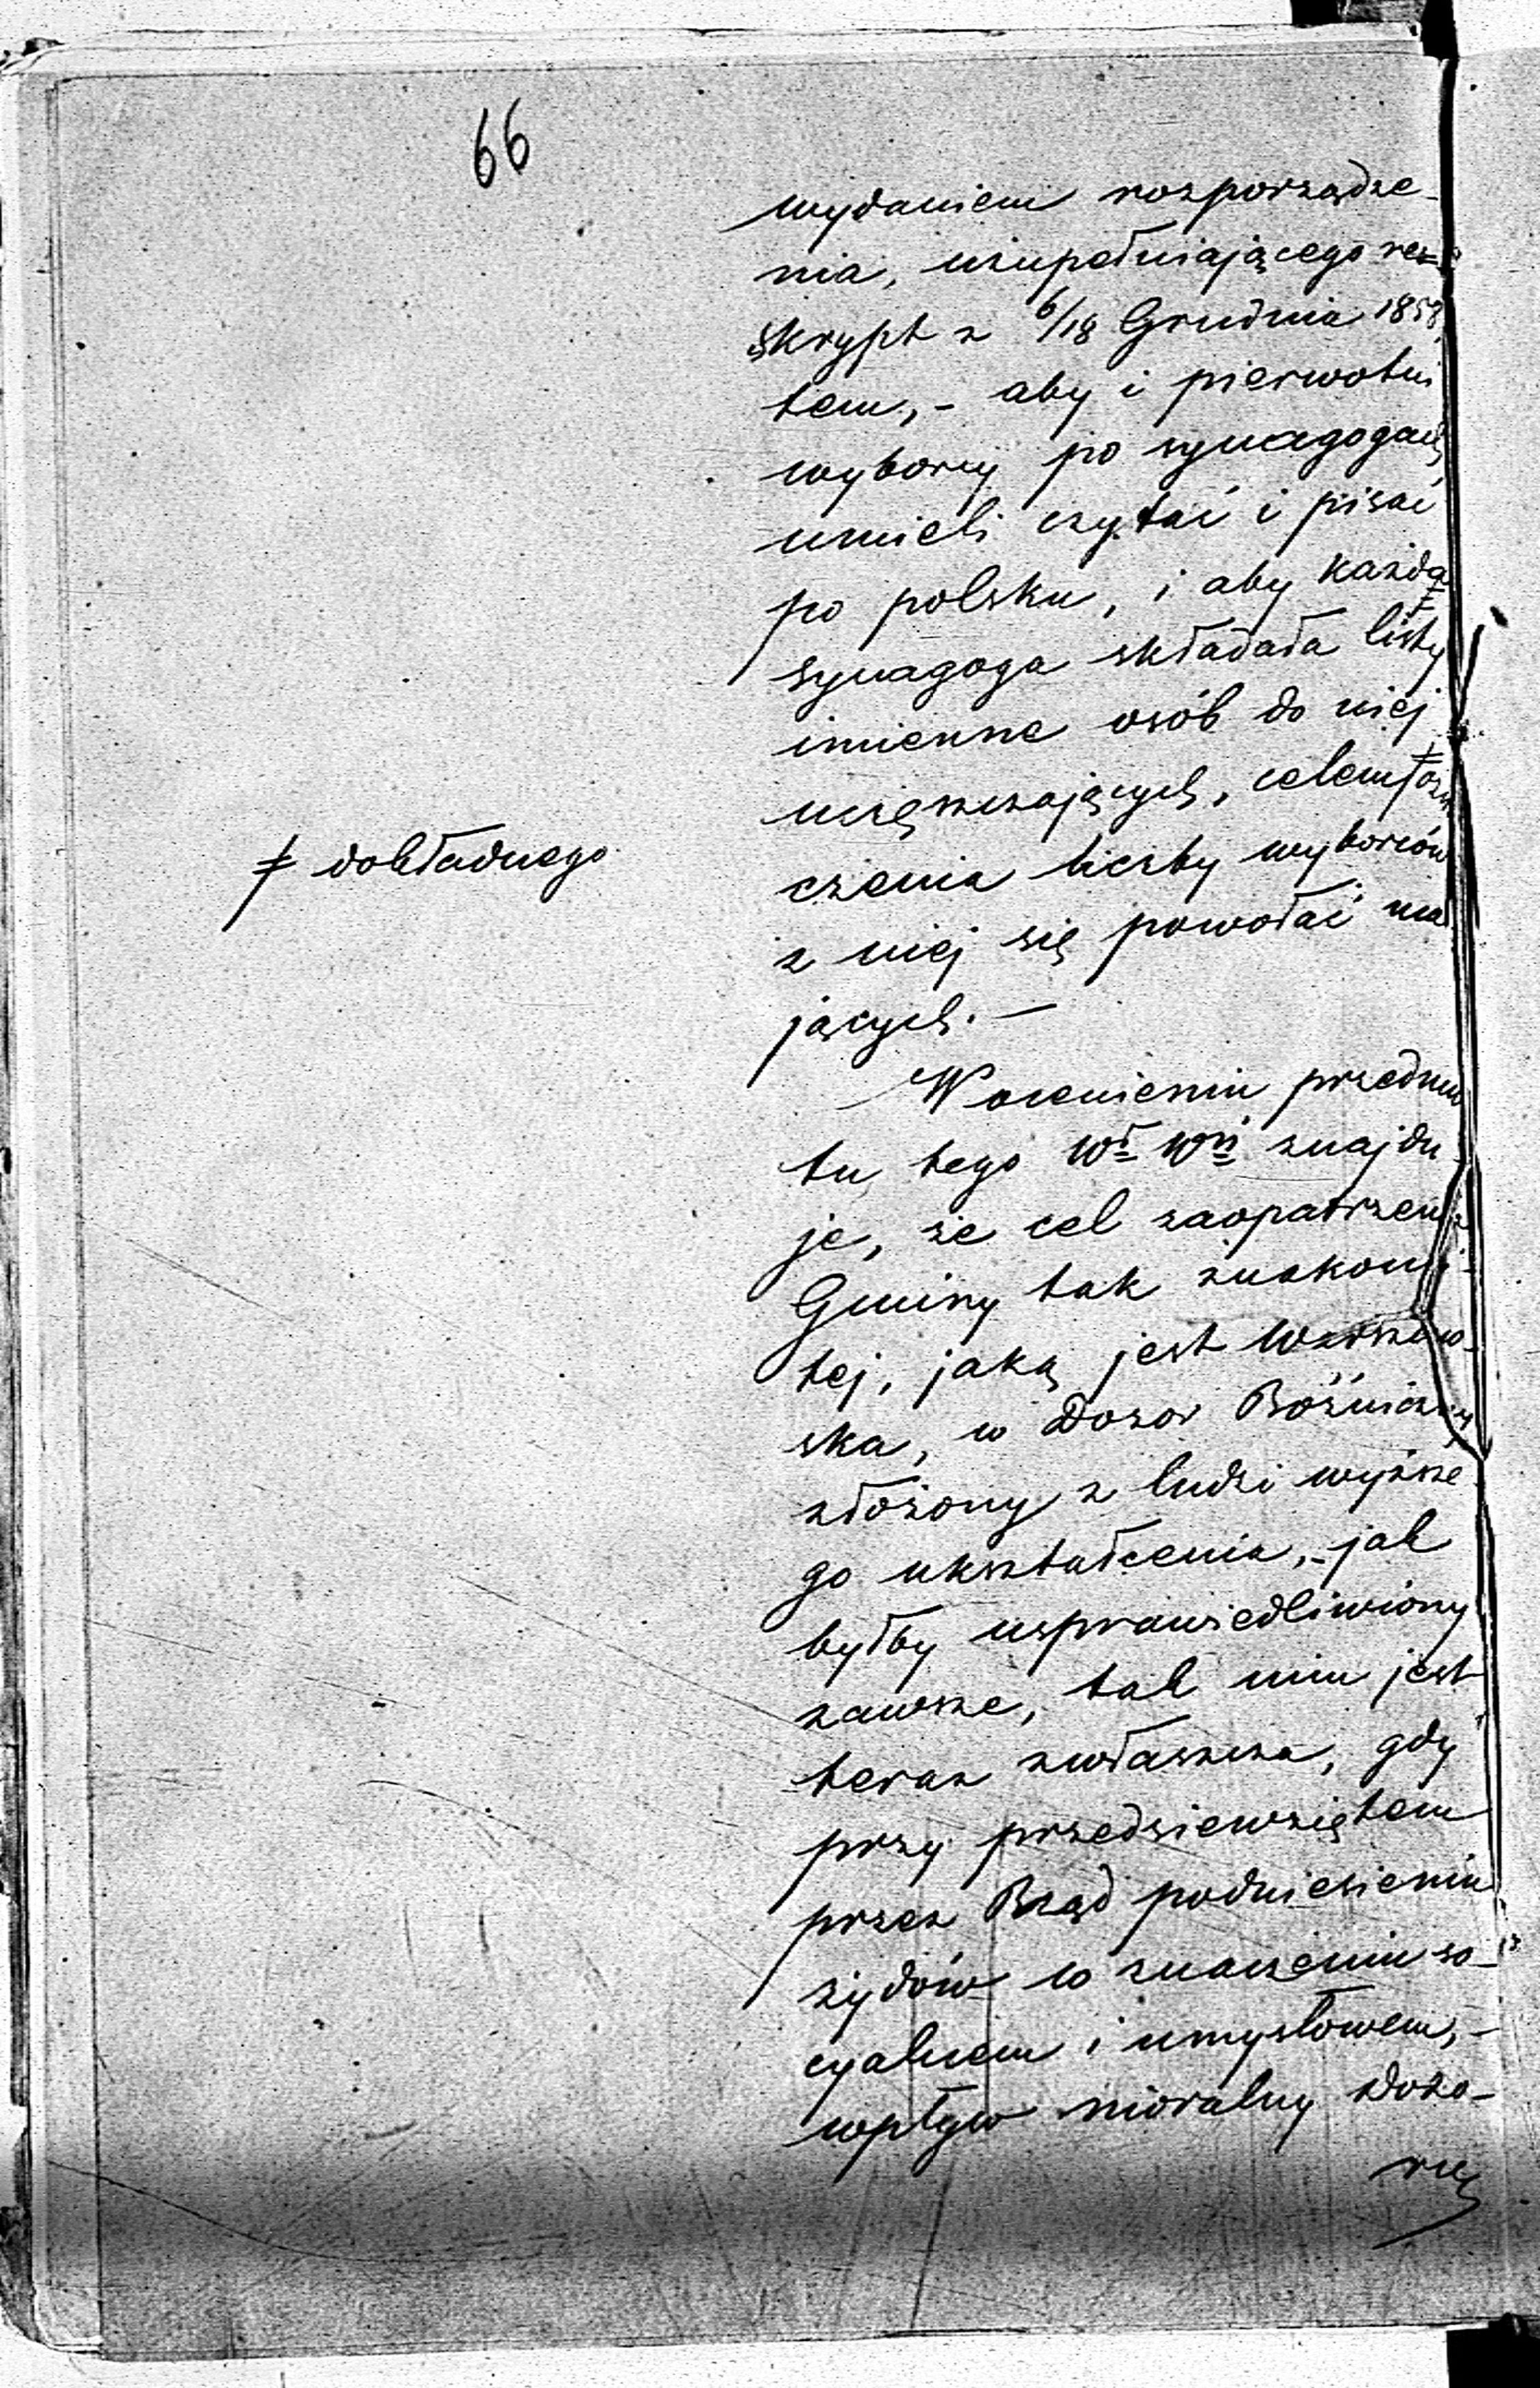 66
wydaniem rozporządze-
nia, uzupełniającego re-
skrypt z 6/18 Grudnia 1858
tem, - aby i pierwotni
wyborcy po synagogach
umieli czytać i pisać
po polsku, i aby każda
synagoga składała listy
imienne osób do niej
uczęszczających, celem ≠ ozna
≠ dokładnego
czenia liczby wyborców
z niej się powołać ma
jących. —
W ocenieniu przedmio
tu tego Wł Wń znajdu-
je, że cel zaopatrzenia
Gminy tak znakomi-
tej, jaką jest Warszaw-
ska, w Dozór Bóźniczy
złożony z ludzi wyższe
go ukształcenia, - jak
byłby usprawiedliwiony
zawsze, tak nim jest
teraz zwłaszcza, gdy
przy przedsiewziętem
przez Rząd podniesieniu
żydów w znaczeniu so-
cyalnem i umysłowem, -
wpływ moralny Dozo-
ru